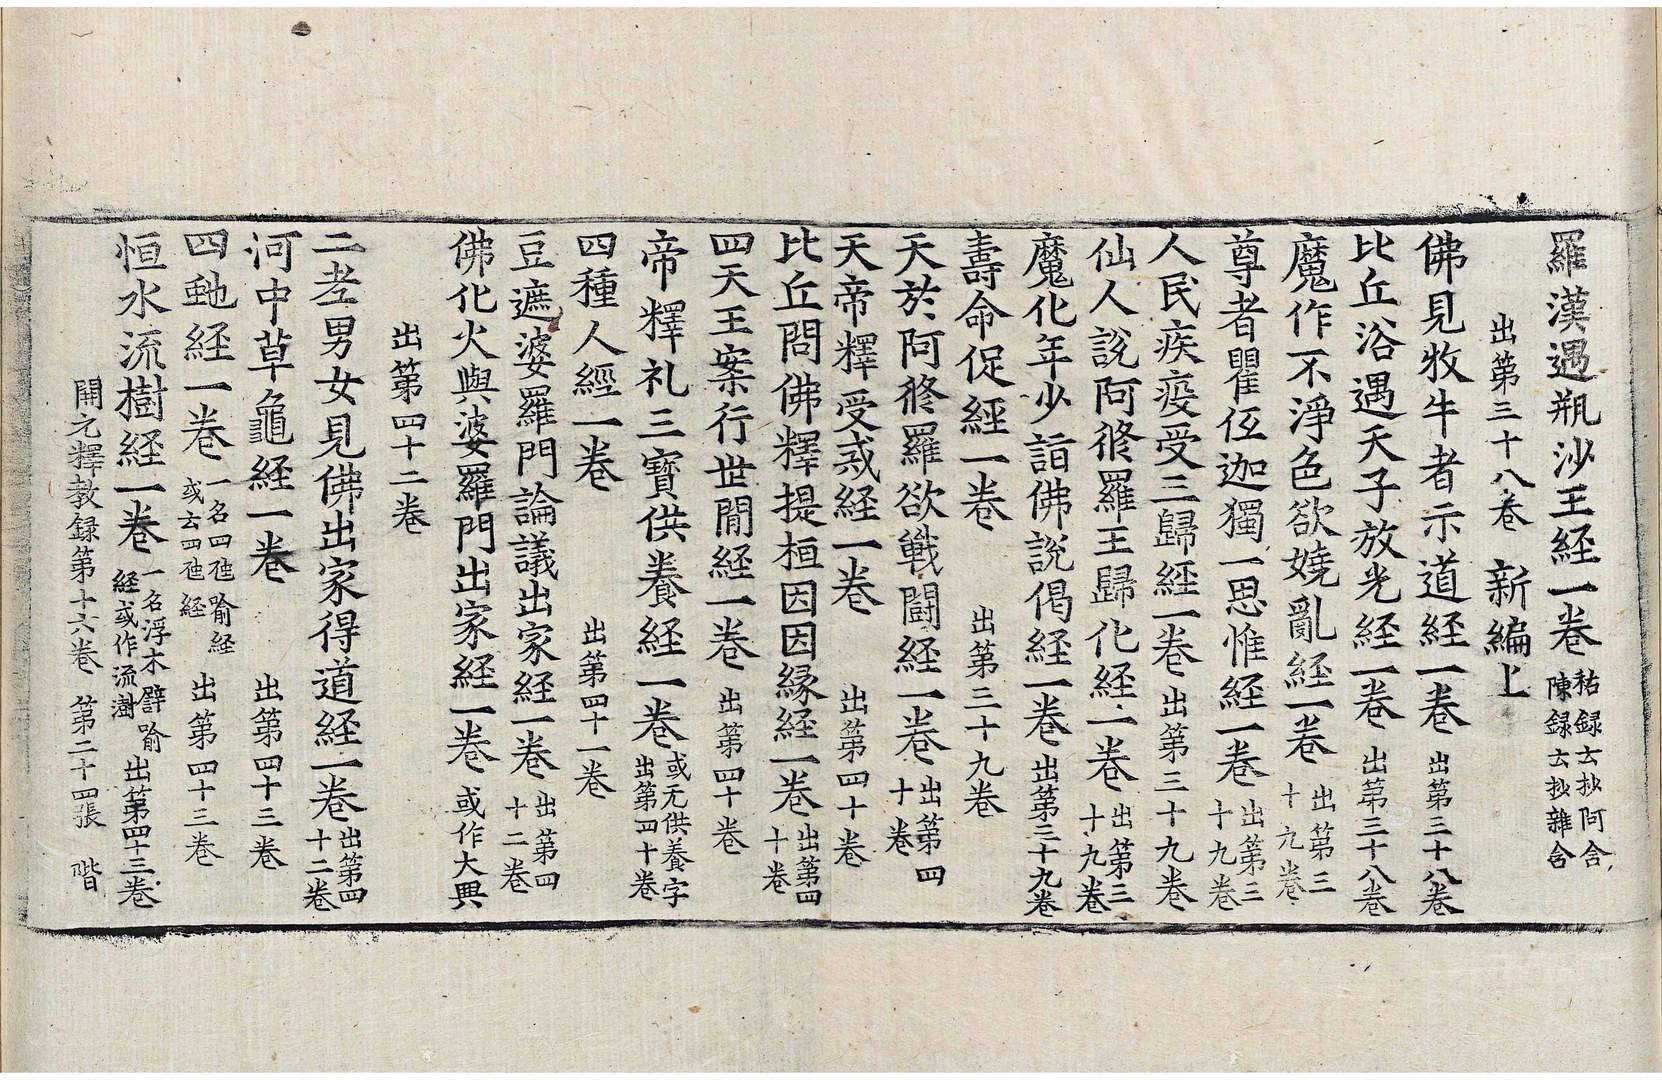 羅漢遇瓶沙王経一巻 祐録云抄阿含 陳録云抄雜含
出第三十八巻 新編上
佛見牧牛者示道経一巻 出第三十八巻
比丘浴遇天子放光経一巻 出第三十八巻
魔作不淨色欲嬈亂経一巻 出第三十九巻
尊者瞿伍迦獨一思惟経一巻 出第三十九巻
人民疾疫受三歸経一巻 出第三十九巻
仙人說阿修羅王歸化経一巻 出第三十九巻
魔化年少詣佛說偈経一巻 出第三十九巻
壽命促経一巻 出第三十九巻
天於阿修羅欲戰鬪経一巻 出第四十巻
天帝釋受戒経一巻 出第四十巻
比丘問佛釋提桓因因縁経一巻 出第四十巻
四天王案行世間経一巻 出第四十巻
帝釋礼三寶供養経一巻 或无供養字出第四十巻
四種人經一巻 出第四十一巻
豆遮婆羅門論議出家経一巻 出第四十二巻
佛化火與婆羅門出家経一巻 或作大興
出第四十二巻
二老男女見佛出家得道経一巻 出第四十二巻
河中草龜経一巻 出第四十三巻
四虵経一巻 一名四虵喻経 或云四虵経 出第四十三巻
恒水流樹経一巻 一名浮木譬喻経或作流澍 出第四十三巻
開元釋教録第十六巻 第二十四張 階